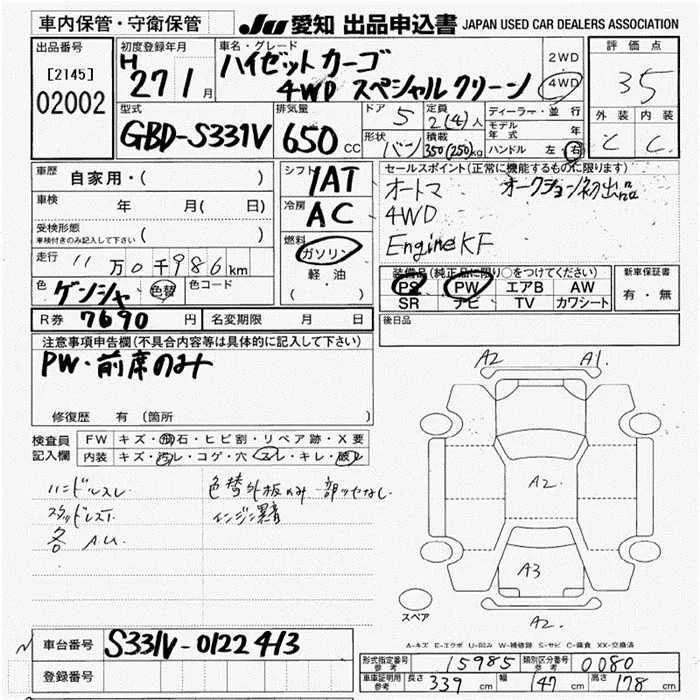 車内保管・守衛保管 JU 愛知 出品申込書 JAPAN USED CAR DEALERS ASSOCIATION
出品番号
[2145]
02002
初度登録年月
H 27 1月
車名・グレード
ハイゼットカーゴ
4WD スペシャルクリーン
2WD
4WD
評価点
3.5
外装 内装
C C
型式
GBD-S331V
排気量
650 CC
ドア 5
定員 2(4)人
形状 バン
積載 350(250)kg
ディーラー・並行
モデル年式 年
ハンドル 左・右
車歴
自家用・( )
車検 年 月( 日)
受検形態
車検付きのみ記入して下さい ( )
走行 11万0千986km
色 ゲンシャ 色替 色コード
シフト 1AT
冷房 AC
燃料
ガソリン
軽油
( )
セールスポイント(正常に機能するものに限ります)
オートマ オークション初出品
4WD
Engine KF
装備品(純正品に限り○をつけてください)
PS PW エアB AW
SR ナビ TV カワシート
新車保証書
有・無
R券 7690円 名変期限 月 日
後日品
注意事項申告欄(不具合内容等は具体的に記入して下さい)
PW・前席のみ
修復歴 有(箇所 )
検査員記入欄
FW キズ・飛石・ヒビ割・リペア跡・X要
内装 キズ・汚れ・コゲ・穴・スレ・キレ・破れ
ハンドルスレ 色替外板のみ一部ツヤなし.
スタッドレスT.
各 A.U.
A2 A1.
A2.
A3
A2.
スペア
A-キズ E-エクボ U-凹み W-補修跡 S-サビ C-腐食 XX-交換済
車台番号 S331V-0122413
登録番号
形式指定番号 参考 15985 類別区分番号 参考 0080
車両寸法 参考 長さ 339cm 幅 147cm 高さ 178cm